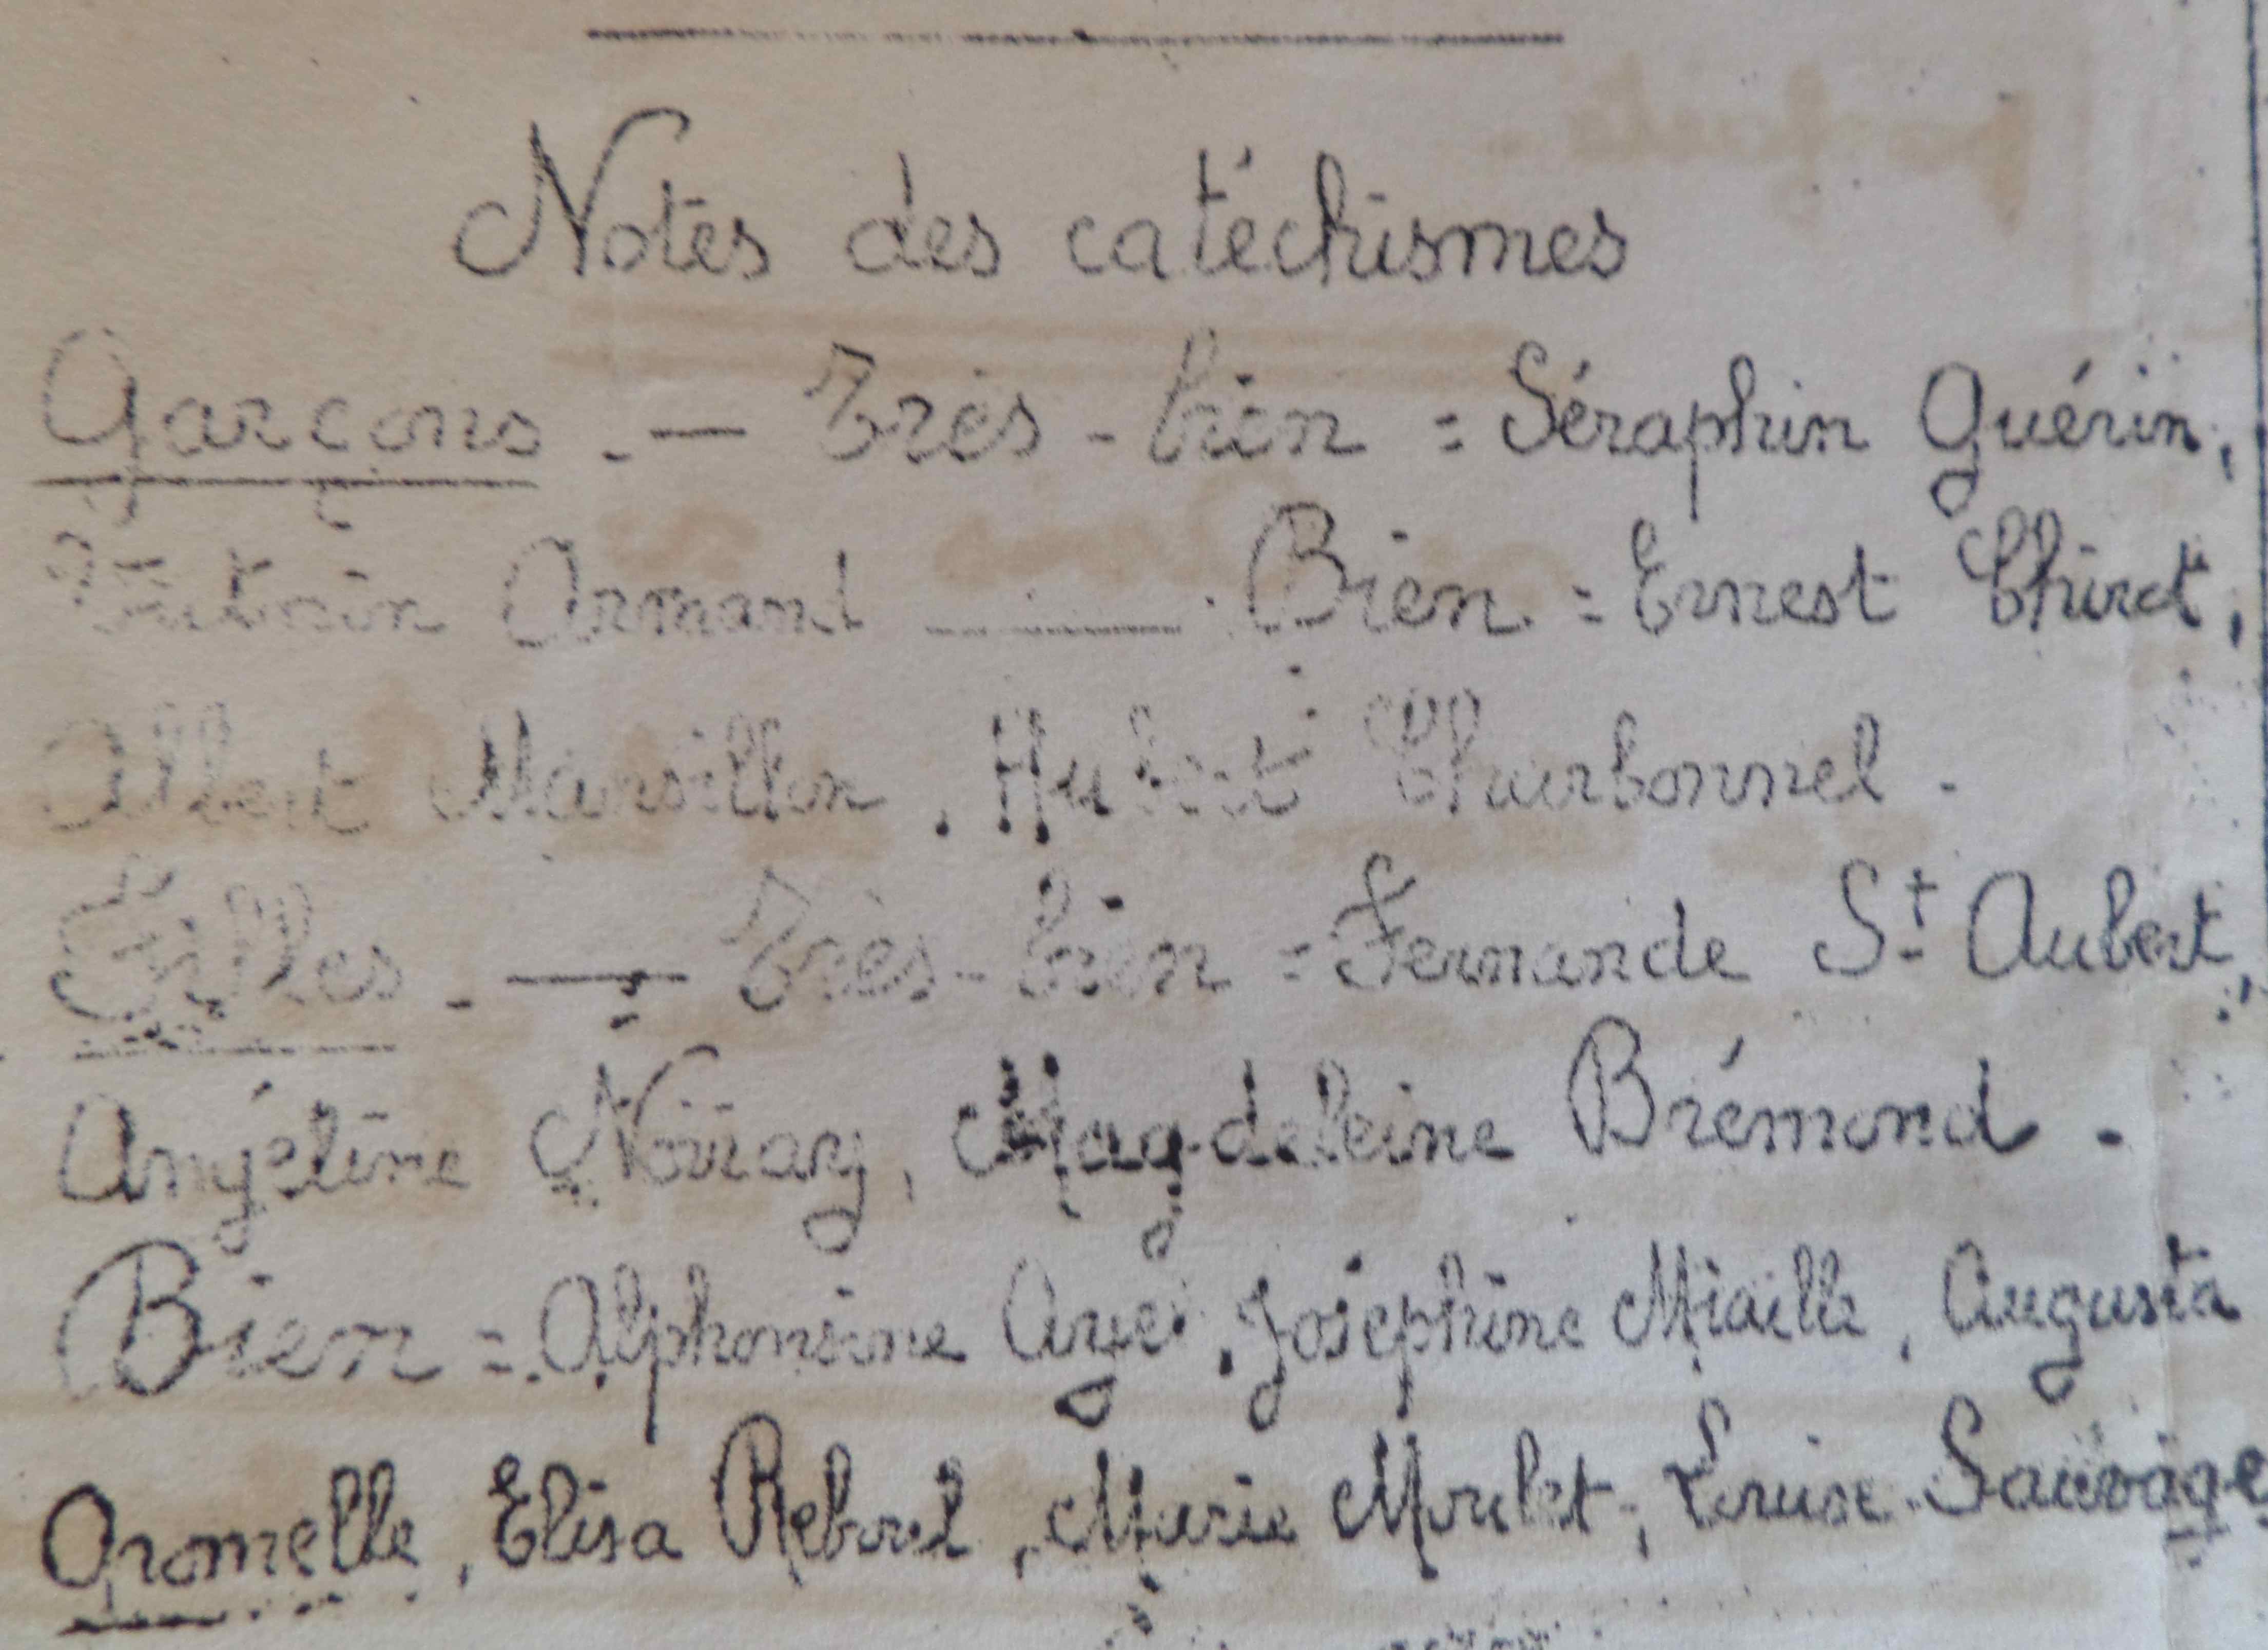 Notes des catéchismes
Garçons . — Très-bien = Séraphin Guérin,
Armand — Bien = Ernest
Albert Marsillon, Hubert Charbonnel.
Filles. — Très-bien = Fernande St Aubert,
Angéline Noiray, Magdeleine Brémond.
Bien = Alphonsine Joséphine Miaille, Augusta
Oromelle, Elisa Reboul, Marie Moulet, Louise Sauvage